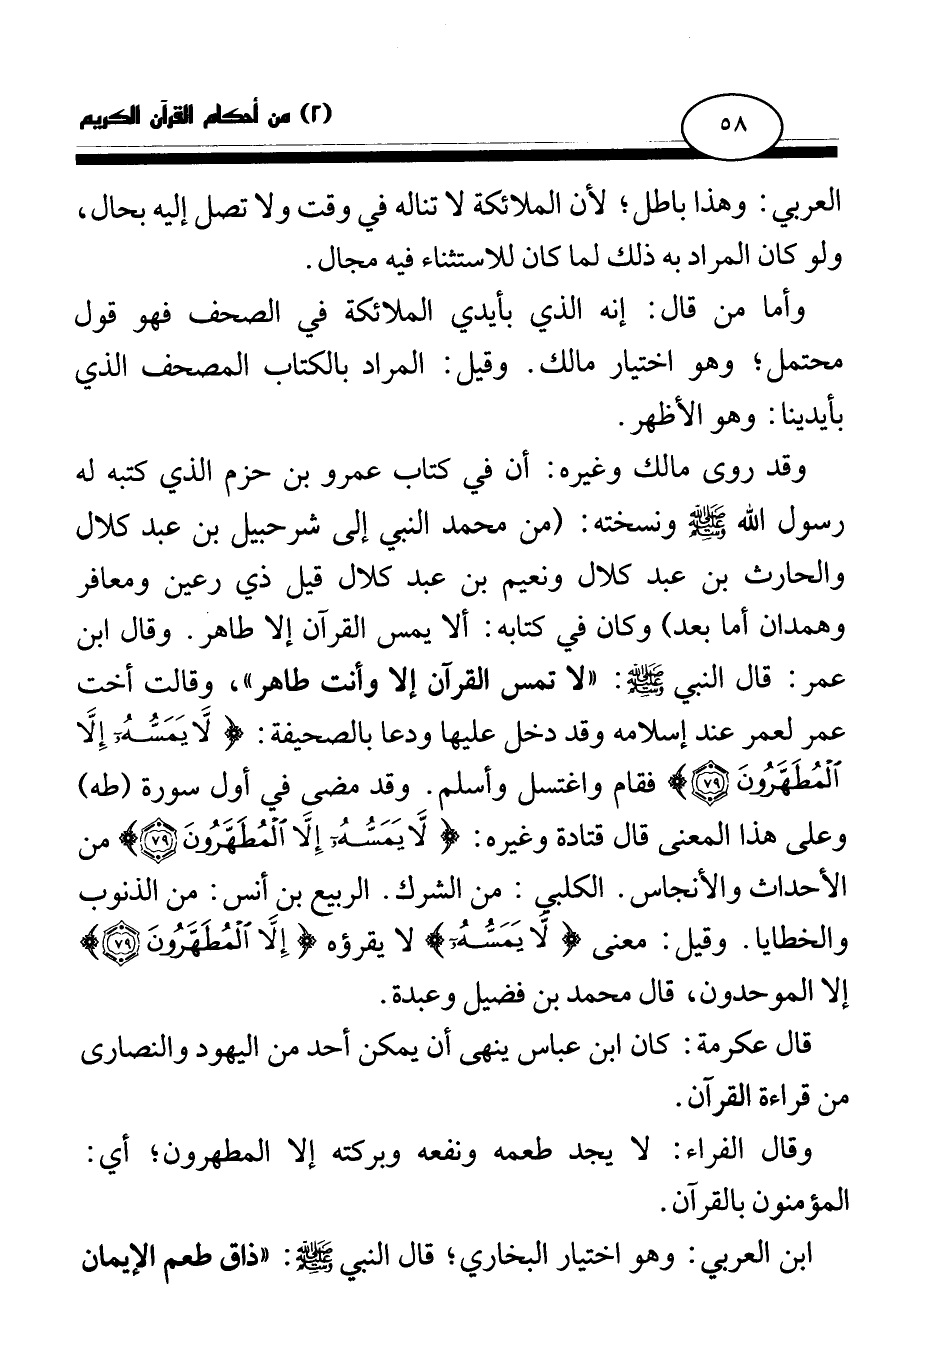 ٥٨
(٢) من أحكام القرآن الكريم
العربي: وهذا باطل؛ لأن الملائكة لا تناله في وقت ولا تصل إليه بحال،
ولو كان المراد به ذلك لما كان للاستثناء فيه مجال.
وأما من قال: إنه الذي بأيدي الملائكة في الصحف فهو قول
محتمل؛ وهو اختيار مالك. وقيل: المراد بالكتاب المصحف الذي
بأيدينا: وهو الأظهر.
وقد روى مالك وغيره: أن في كتاب عمرو بن حزم الذي كتبه له
رسول الله ﷺ ونسخته: (من محمد النبي إلى شرحبيل بن عبد كلال
والحارث بن عبد كلال ونعيم بن عبد كلال قيل ذي رعين ومعافر
وهمدان أما بعد) وكان في كتابه: ألا يمس القرآن إلا طاهر. وقال ابن
عمر: قال النبي ﷺ: «لا تمس القرآن إلا وأنت طاهر»، وقالت أخت
عمر لعمر عند إسلامه وقد دخل عليها ودعا بالصحيفة: ﴿لَّا يَمَسُّهُۥٓ إِلَّا
ٱلْمُطَهَّرُونَ ٧٩﴾ فقام واغتسل وأسلم. وقد مضى في أول سورة (طه)
وعلى هذا المعنى قال قتادة وغيره: ﴿لَّا يَمَسُّهُۥٓ إِلَّا ٱلْمُطَهَّرُونَ ٧٩﴾ من
الأحداث والأنجاس. الكلبي : من الشرك. الربيع بن أنس: من الذنوب
والخطايا. وقيل: معنى ﴿لَّا يَمَسُّهُۥٓ﴾ لا يقرؤه ﴿إِلَّا ٱلْمُطَهَّرُونَ ٧٩﴾
إلا الموحدون، قال محمد بن فضيل وعبدة.
قال عكرمة: كان ابن عباس ينهى أن يمكن أحد من اليهود والنصارى
من قراءة القرآن.
وقال الفراء: لا يجد طعمه ونفعه وبركته إلا المطهرون؛ أي:
المؤمنون بالقرآن.
ابن العربي: وهو اختيار البخاري؛ قال النبي ﷺ: «ذاق طعم الإيمان